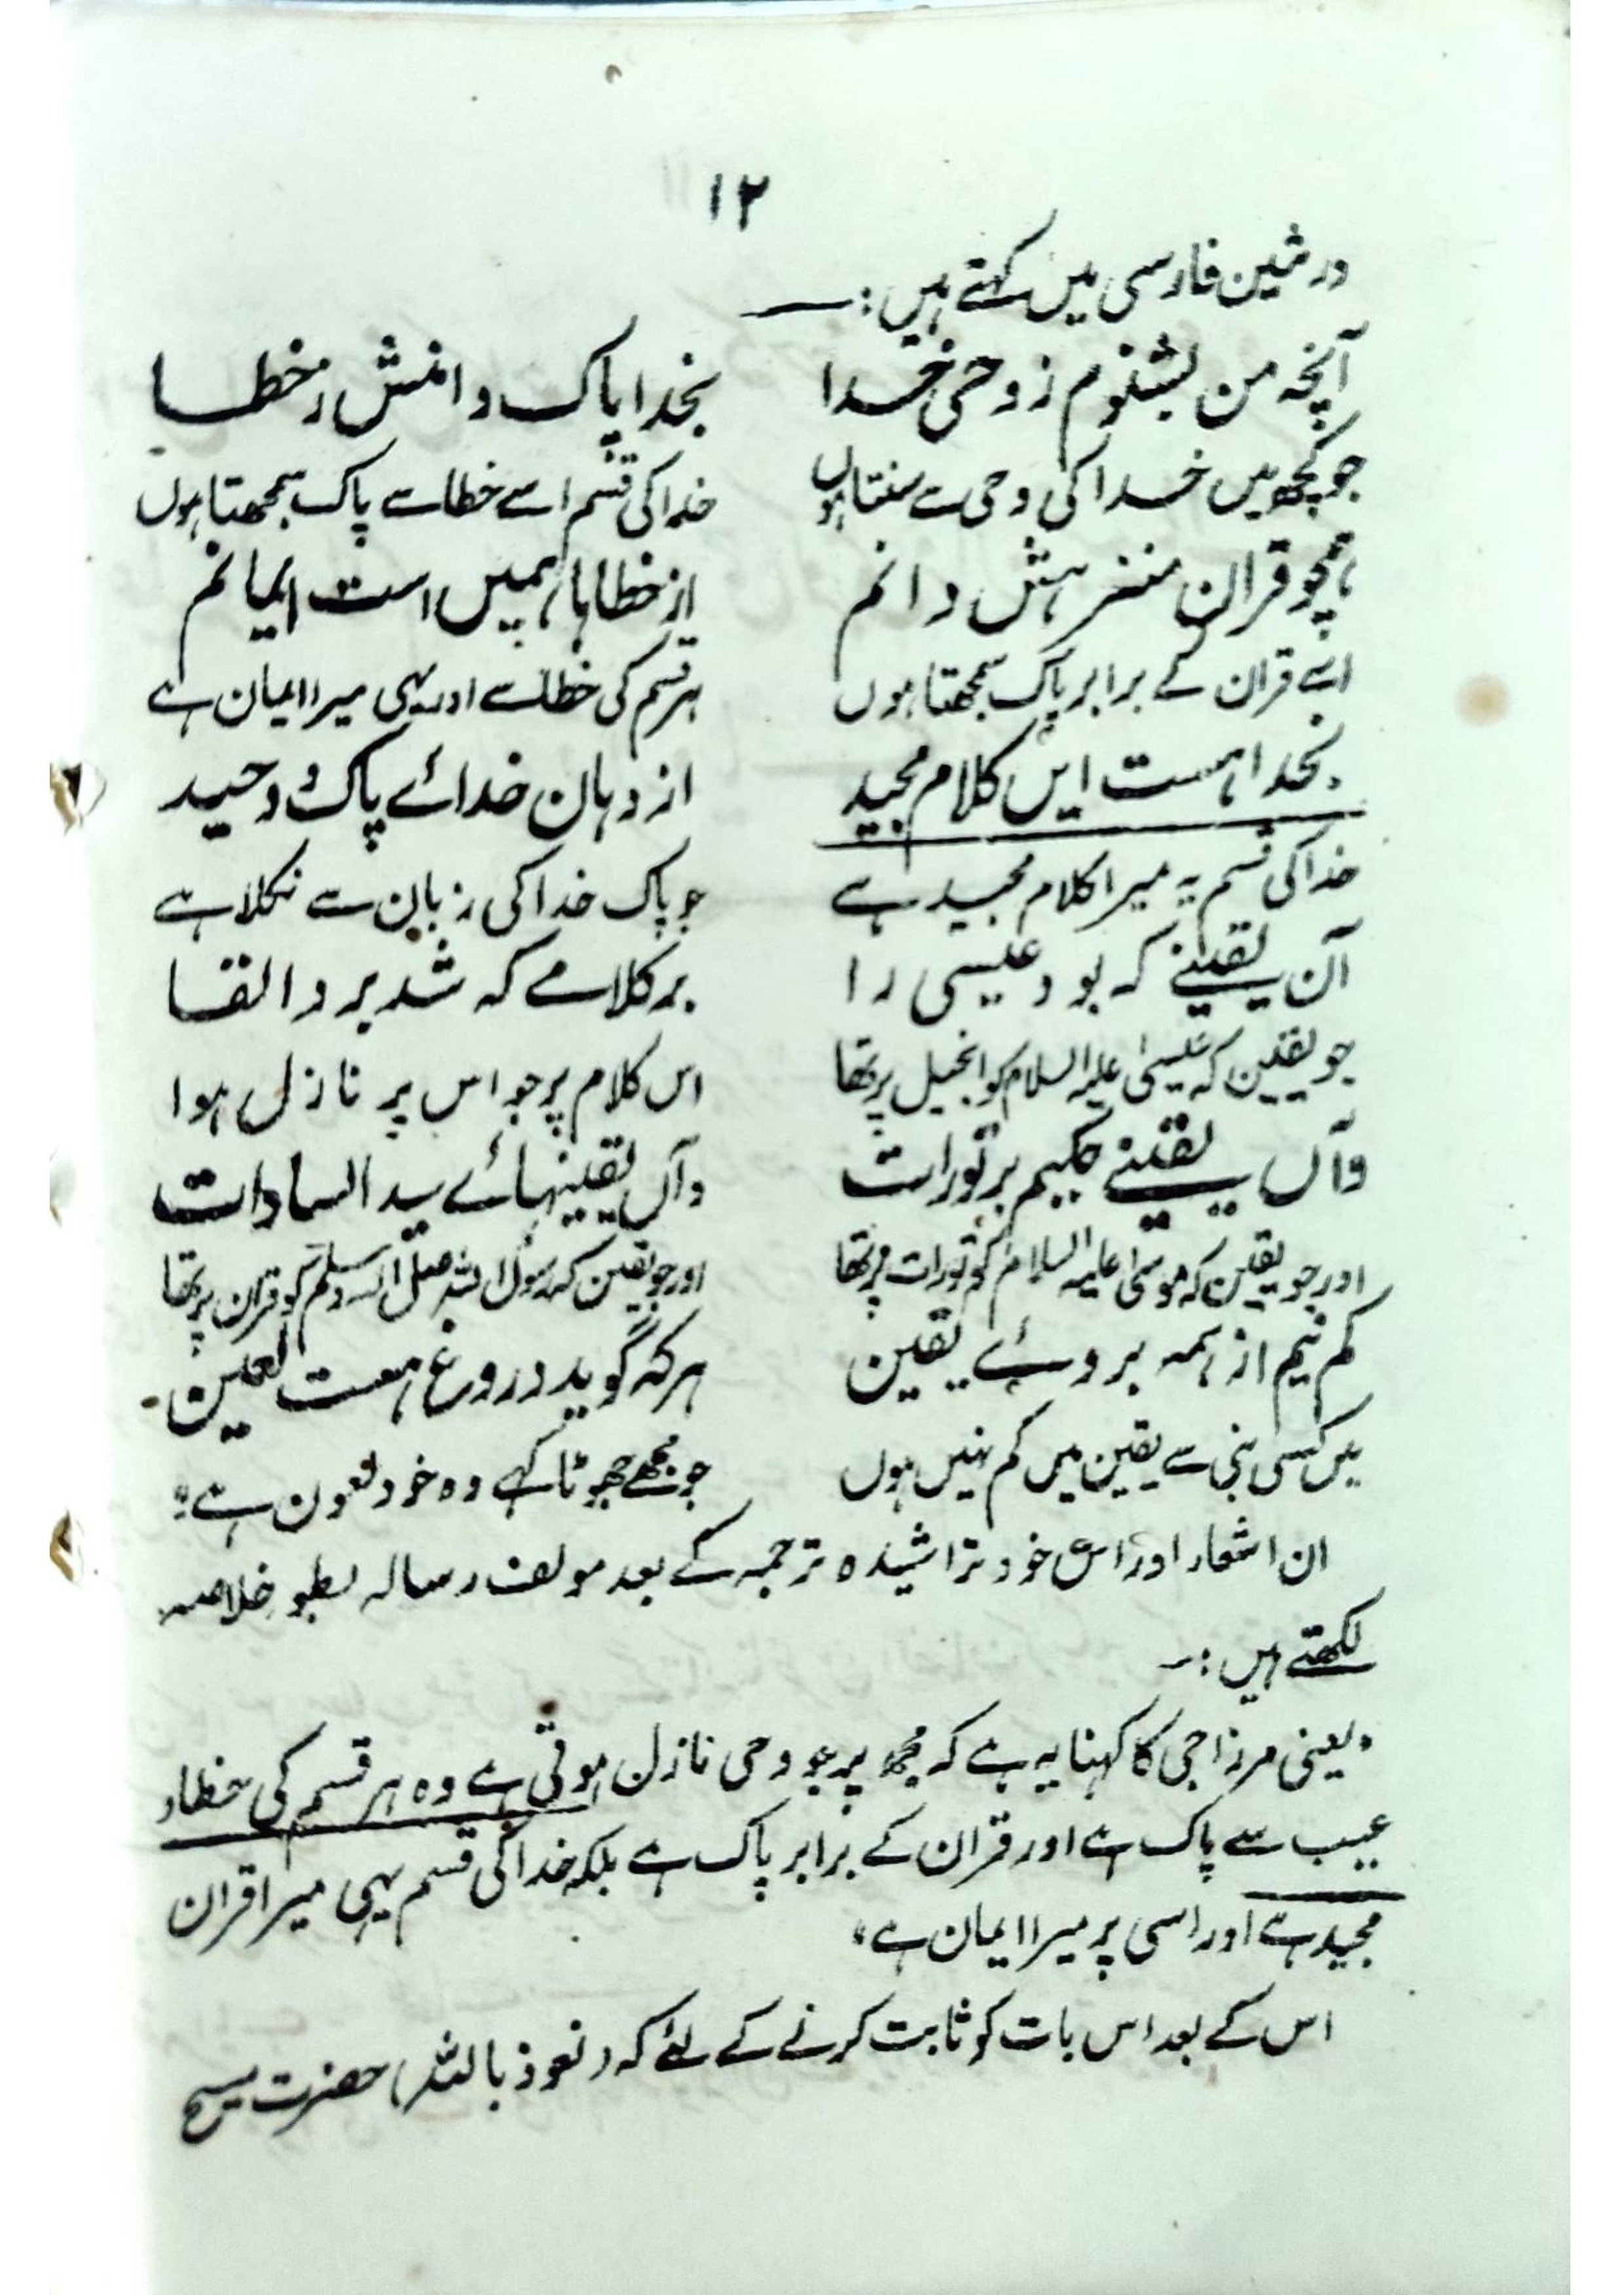 ۱۲
در ثمین فارسی میں کہتے ہیں :۔
آنچہ من بشنوم ز وحی خدا بخدا پاک دانمش ز خطا
جو کچھ میں خدا کی وحی سے سنتا ہوں خدا کی قسم اسے خطا سے پاک سمجھتا ہوں
ہمچو قران منزہش دانم از خطاہا ہمیں است ایمانم
اسے قران کے برابر پاک سمجھتا ہوں ہر قسم کی خطا سے اور یہی میرا ایمان ہے
بخدا ہست ایں کلام مجید از دہان خدائے پاک و وحید
خدا کی قسم یہ میرا کلام مجید ہے جو پاک خدا کی زبان سے نکلا ہے
آن یقینے کہ بود عیسی را بر کلامے کہ شد برو القا
جو یقین کہ عیسیٰ علیہ السلام کو انجیل پر تھا اس کلام پر جو اس پر نازل ہوا
وآں یقینے کلیم بر تورات وآں یقینہائے سید السادات
اور جو یقین کہ موسیٰ علیہ السلام کو تورات پر تھا اور جو یقین کہ رسول اللہ صلی اللہ وسلم کو قران پر تھا
کم نیم از ہمہ بروئے یقین ہر کہ گوید دروغ ہست لعین
میں کسی نبی سے یقین میں کم نہیں ہوں جو مجھے جھوٹا کہے وہ خود لعون ہے"
ان اشعار اور اس خود تراشیدہ ترجمہ کے بعد مولف رسالہ بطور خلاصہ
لکھتے ہیں :۔
"یعنی مرزا جی کا کہنا یہ ہے کہ مجھ پر جو وحی نازل ہوتی ہے وہ ہر قسم کی خطاء
عیب سے پاک ہے اور قران کے برابر پاک ہے بلکہ خدا کی قسم یہی میرا قران
مجید ہے اور اسی پر میرا ایمان ہے"
اس کے بعد اس بات کو ثابت کرنے کے لئے کہ (نعوذ باللہ) حضرت مسیح